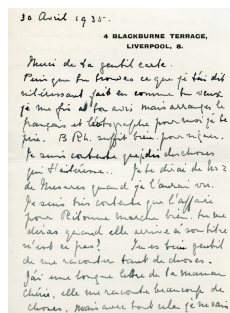 30 Avril 1935.
4 BLACKBURNE TERRACE,
LIVERPOOL, 8.
Merci de ta gentil carte.
Puisque tu trouves ce que je t'ai dit
intéressant fait en comme tu veux
je me fie à ton avis mais arranges le
français et l'ortographe pour moi je te
prie. B Rh. suffit bien pour signer.
Je suis contente que j'ai des choses
qui t'intéresse. Je te dirai de
de Mesures quand je l'aurai vu.
Je suis très contente que l'affaire
pour Ritonne marche bien. tu me
diras quand elle arrive à son titre
n'est ce pas? Tu es bien gentil
de me raconter tant de choses.
J'ai une longue lettre de ta maman
chérie, elle me raconte beaucoup de
choses, mais avec tout cela je ne sais